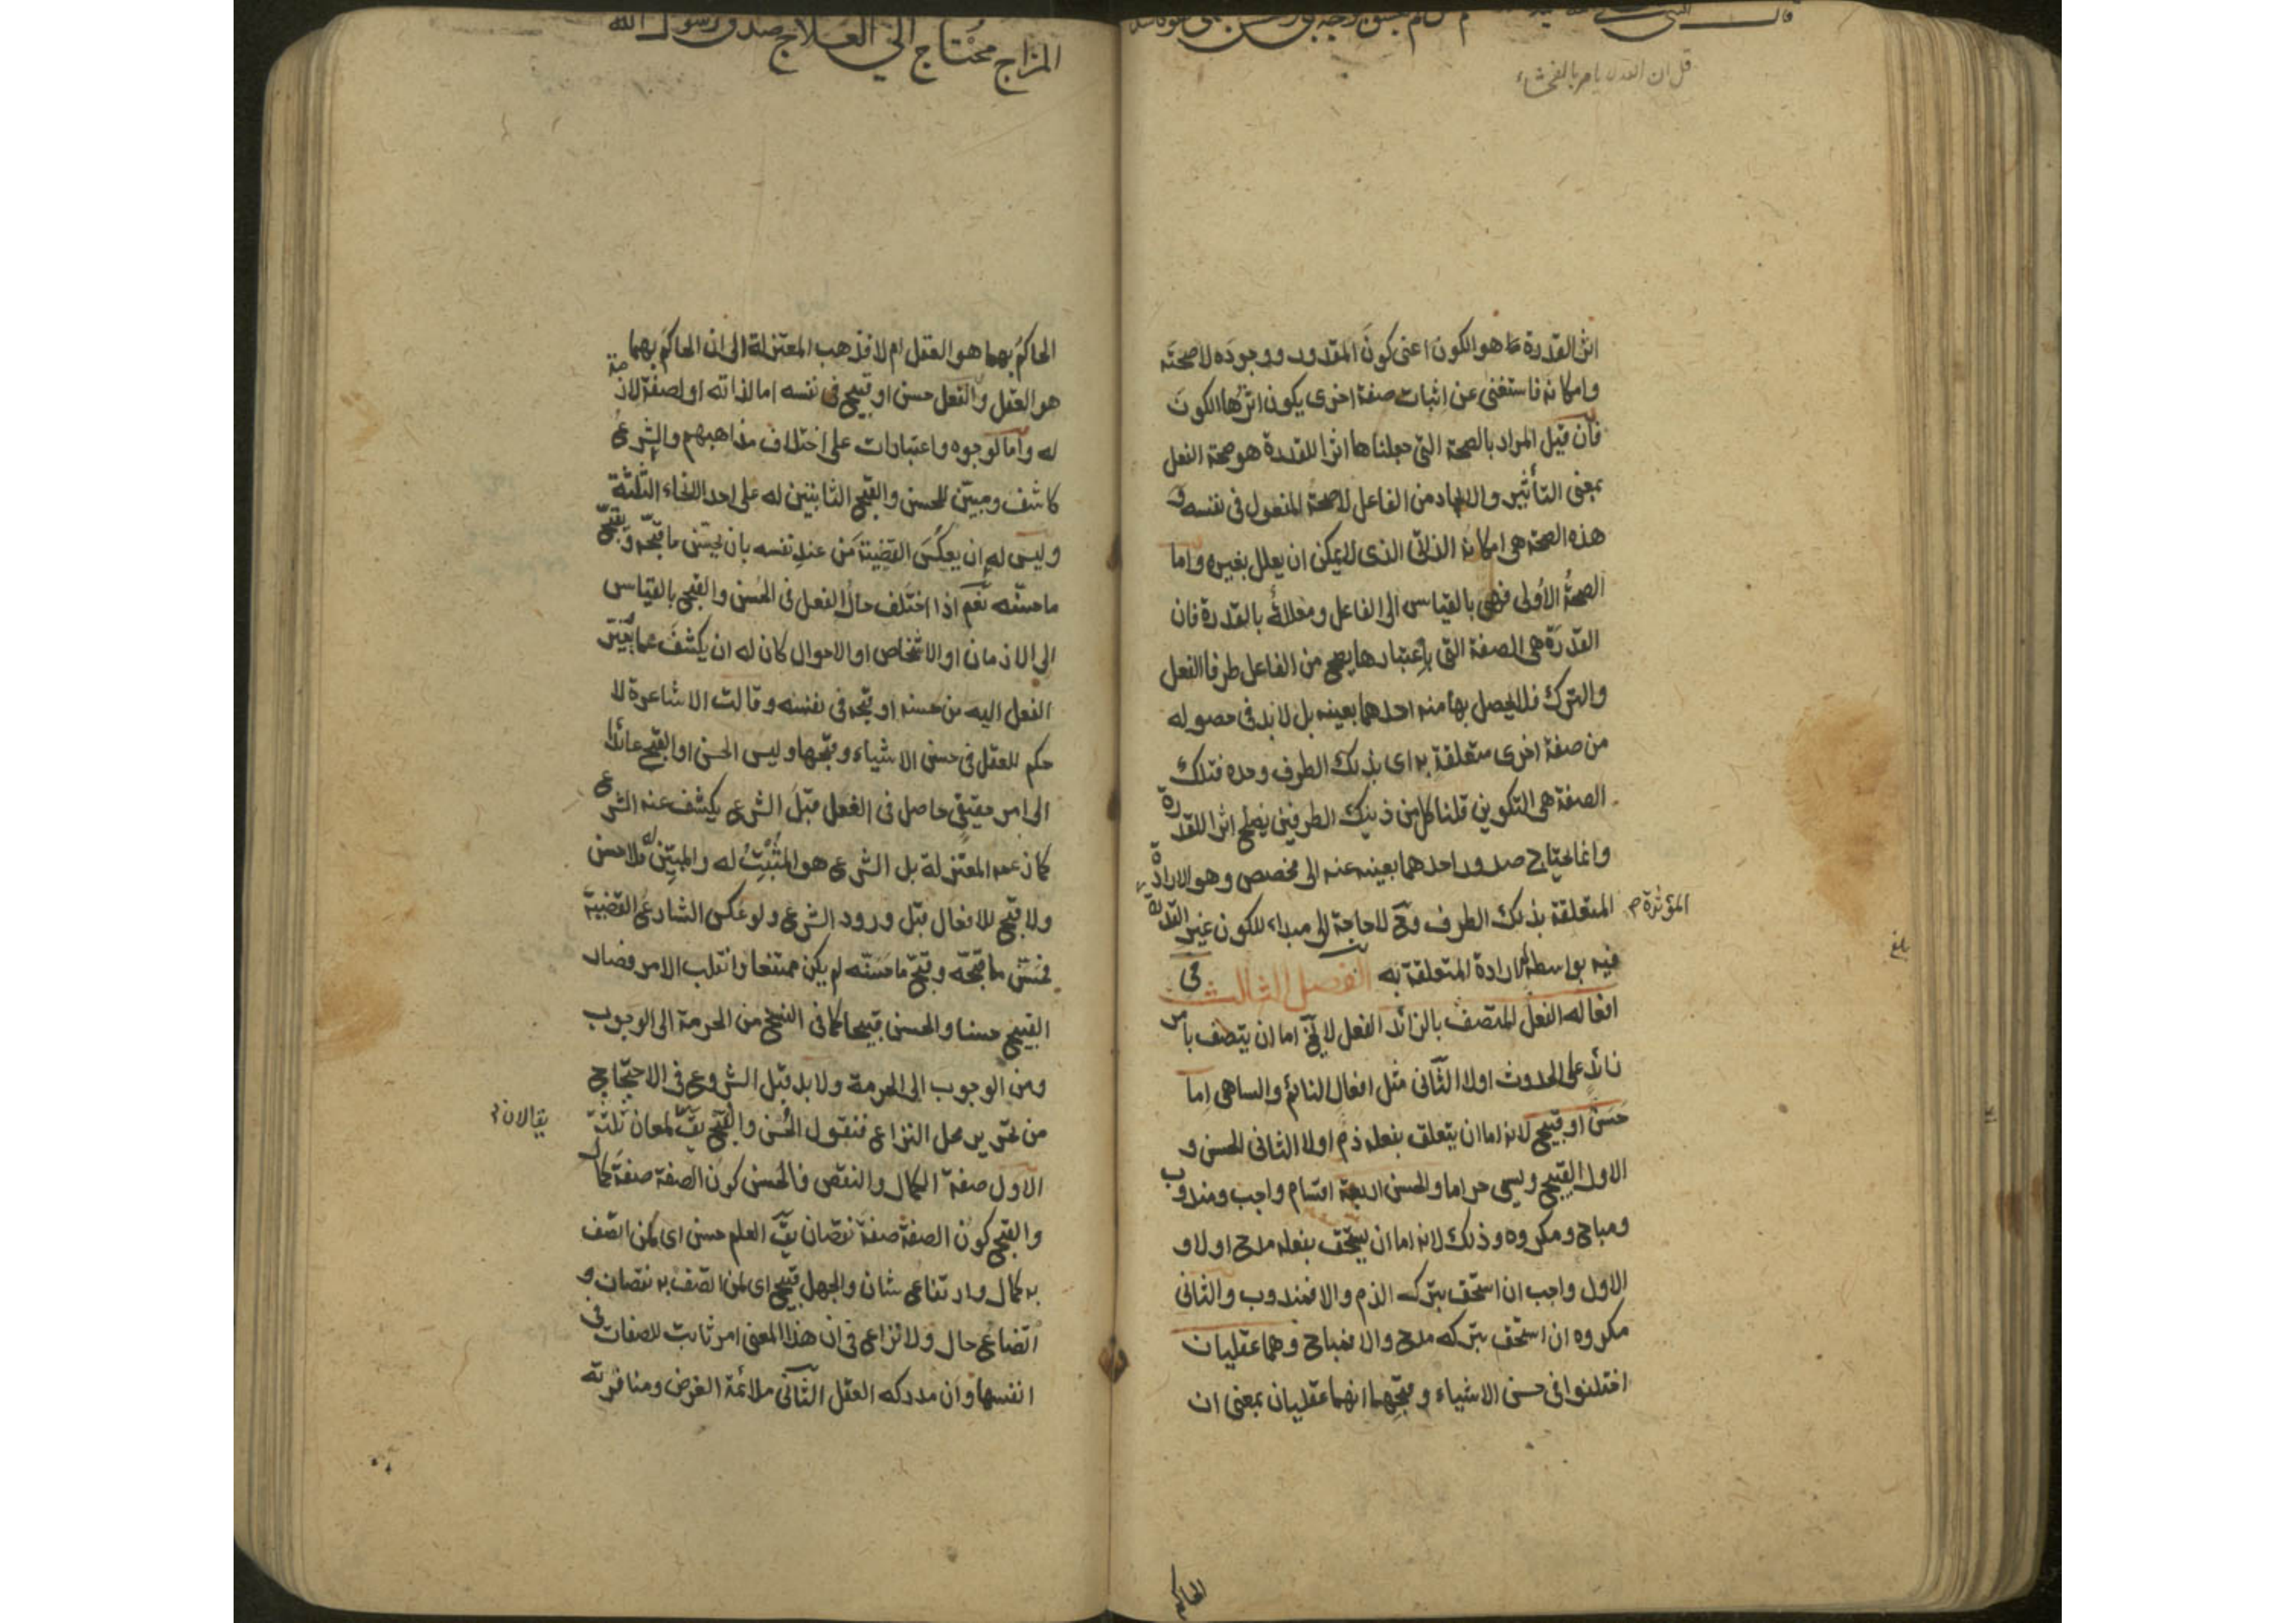 قل ان الله لا يامر بالفحشاء
اثر القدرة هو الكون اعنى كون المقدور ووجوده لا صحته
وامكانه فاستغنى عن اثبات صفة اخرى يكون اثرها الكون
فان قيل المراد بالصحة التى جعلناها اثرا للقدرة هو صحة الفعل
بمعنى التأثير والايجاد من الفاعل لا صحة المفعول فى نفسه و
هذه الصحة هى امكانه الذاتى الذى لا يمكن ان يعلل بغيره واما
الصحة الاولى فهى بالقياس الى الفاعل ومعللة بالقدرة فان
القدرة هى الصفة التى باعتبارها يصح من الفاعل طرفا الفعل
والترك فلا يحصل بها منه احدهما بعينه بل لا بد فى حصوله
من صفة اخرى متعلقة به اى بذلك الطرف وحده فتلك
الصفة هى التكوين قلنا كل من ذينك الطرفين يصلح اثرا للقدرة
وانما يحتاج صدور احدهما بعينه عنه الى مخصص وهو الارادة
المتعلقة بذلك الطرف وح لا حاجة الى مبداء للكون غير القدرة
المؤثرة م
فيه بواسطة الارادة المتعلقة به الفصل الثالث فى
بلغ
افعاله الفعل المتصف بالزائد الفعل لا يخ اما ان يتصف بامر
زائد على الحدوث اولا الثانى مثل افعال النائم والساهى اما
حسن او قبيح لانه اما ان يتعلق بفعله ذم اولا الثانى الحسن و
الاول القبيح ويسمى حراما والحسن اربعة اقسام واجب ومندوب
ومباح ومكروه وذلك لانه اما ان يستحق بفعله مدح اولا و
الاول واجب ان استحق بتركه الذم والا فمندوب والثانى
مكروه ان استحق بتركه مدح والا فمباح وهما عقليان
اختلفوا فى حسن الاشياء وقبحها انهما عقليان بمعنى ان
الحاكم
المزاج محتاج الى العلاج صدق رسول الله
الحاكم بهما هو العقل ام لا فذهب المعتزلة الى ان الحاكم بهما
هو العقل والفعل حسن او قبيح فى نفسه اما لذاته او لصفة لازمة
له واما لوجوه واعتبارات على اختلاف مذاهبهم والشرع
كاشف ومبين للحسن والقبح الثابتين له على احد الانحاء الثلثة
وليس له ان يعكس القضية من عند نفسه بان يحسن ما قبحه ويقبح
ما حسنه نعم اذا اختلف حال الفعل فى الحسن والقبح بالقياس
الى الازمان او الاشخاص او الاحوال كان له ان يكشف عما يتغير
الفعل اليه من حسنه او قبحه فى نفسه وقالت الاشاعرة لا
حكم للعقل فى حسن الاشياء وقبحها وليس الحسن او القبح عائدا
الى امر حقيقى حاصل فى الفعل قبل الشرع يكشف عنه الشرع
كما زعمه المعتزلة بل الشرع هو المثبت له والمبين فلا حسن
ولا قبح للافعال قبل ورود الشرع ولو عكس الشارع القضية
فحسن ما قبحه وقبح ما حسنه لم يكن ممتنعا وانقلب الامر فصار
القبيح حسنا والحسن قبيحا كما فى النسخ من الحرمة الى الوجوب
ومن الوجوب الى الحرمة ولا بد قبل الشروع فى الاحتجاج
من تحرير محل النزاع فنقول الحسن والقبح يق لمعان ثلثة
يقالان
الاول صفة الكمال والنقص فالحسن كون الصفة صفة كمال
والقبح كون الصفة صفة نقصان يق العلم حسن اى لمن اتصف
به كمال وارتفاع شان والجهل قبيح اى لمن اتصف به نقصان و
اتضاع حال ولا نزاع فى ان هذا المعنى امر ثابت للصفات فى
انفسها وان مدركه العقل الثانى ملائمة الغرض ومنافرته